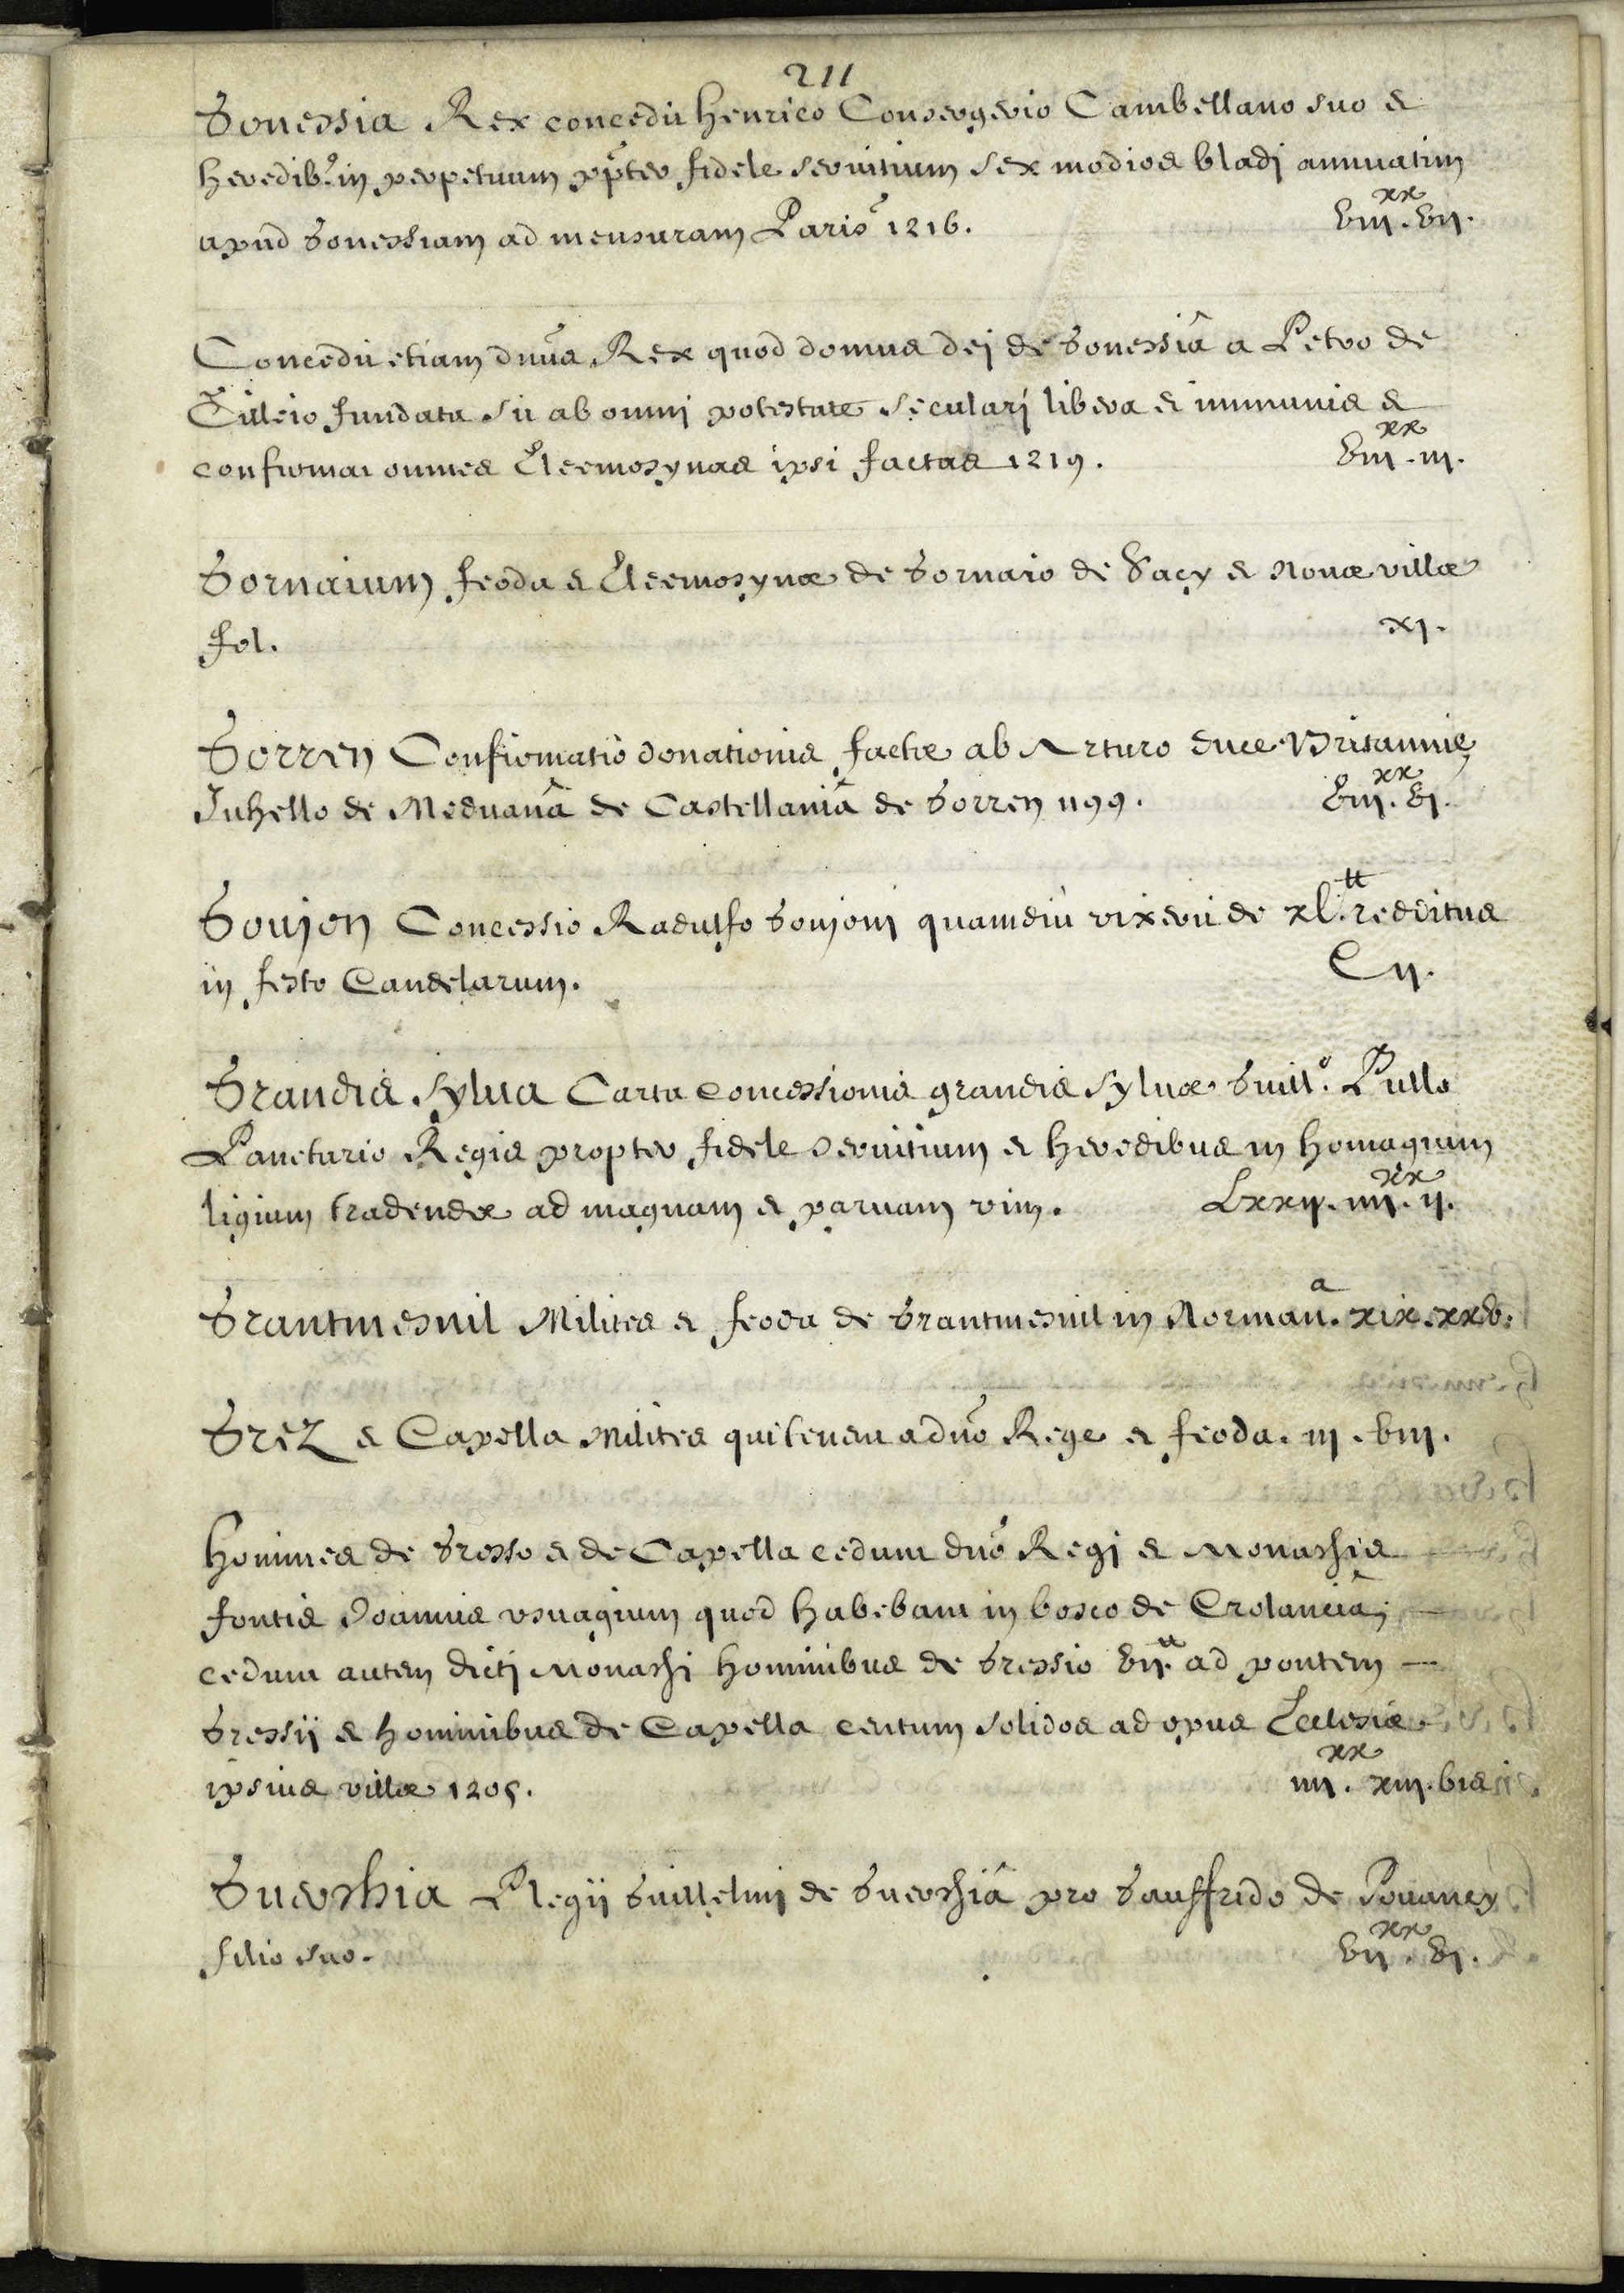 211
Gonessia Rex concedit henrico Consergerio Cambellano suo et
heredib? in perpetuum ppter fidele seruitium sex modios bladi annuatim
apud Gonessiam ad mensuram Paris 1216. viij.xx vij.
Concedit etiam dnus Rex quod domus dei de Gonessiâ a Petro de
fundata sit ab omni potestate seculari libera et immunis et
confirmat omnes Eleemosynas ipsi factas 1219. viij.xx iij.
Gornaium feoda et Eleemosynæ de Gornaio de Sacy et Nouæ villæ
fol. xj.
Gorren Confirmatio donationis factæ ab Arturo duce Britannię
Juhello de Meduanâ de Castellaniâ de Gorren 1199. viij.xx vj.
Goujon Concessio Radulfo Goujoni quamdiù vixerit de xl.tt redditus
in festo Candelarum. Cij.
Grandis sylua Carta concessionis grandis syluæ Guill? Pullo
Panetario Regis propter fidele seruitium et heredibus in homagium
ligium tradendæ ad magnam et paruam vim. Lxxij. iiij.xx ij.
Grantmesnil Milites et feoda de Grantmesnil in Norman.a xix.xxv.
Grez et Capella Milites qui tenent a dnō Rege et feoda. iij. viij.
homines de Gresso et de Capella cedunt dnō Regi et Monachis
fontis Joannis vsuagium quod habebant in bosco de Crolanciâ;
cedunt autem dicti Monachi hominibus de Gressio vij.tt ad pontem
Gressij et hominibus de Capella centum solidos ad opus Ecclesiæ
ipsius villæ 1205. iiij.xx xiij.bis
Guerchia Plegij Guillelmi de Guerchiâ pro Gauffrido de Pouancy
filio suo. vij.xx vj.